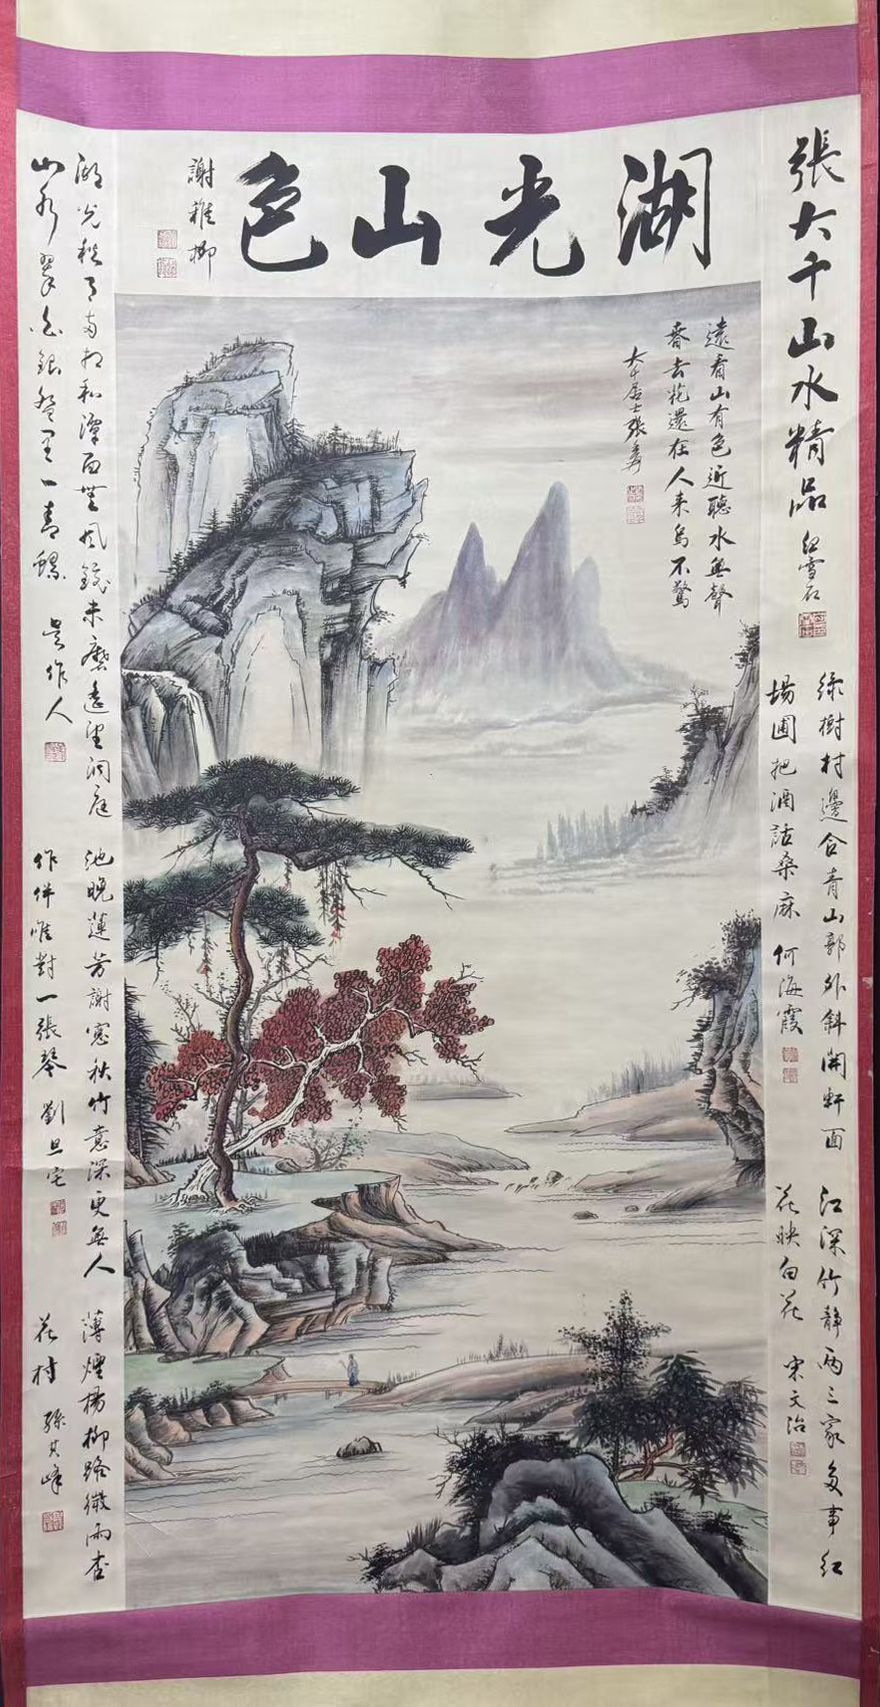 湖光山色
謝稚柳
張大千山水精品
綠樹村邊合青山郭外斜開軒面
場圃把酒話桑麻 何海霞
江深竹靜兩三家多事紅
花映白花 宋文治
遠看山有色近聽水無聲
春去花還在人来鳥不驚
大千居士張爰
湖光秋月兩相和潭面無風鏡未磨遙望洞庭
山水翠白銀盤里一青螺 吳作人
池晚蓮芳謝窓秋竹意深更無人
作伴唯對一張琴 劉旦宅
薄煙楊柳路微雨杏
花村 孫其峰